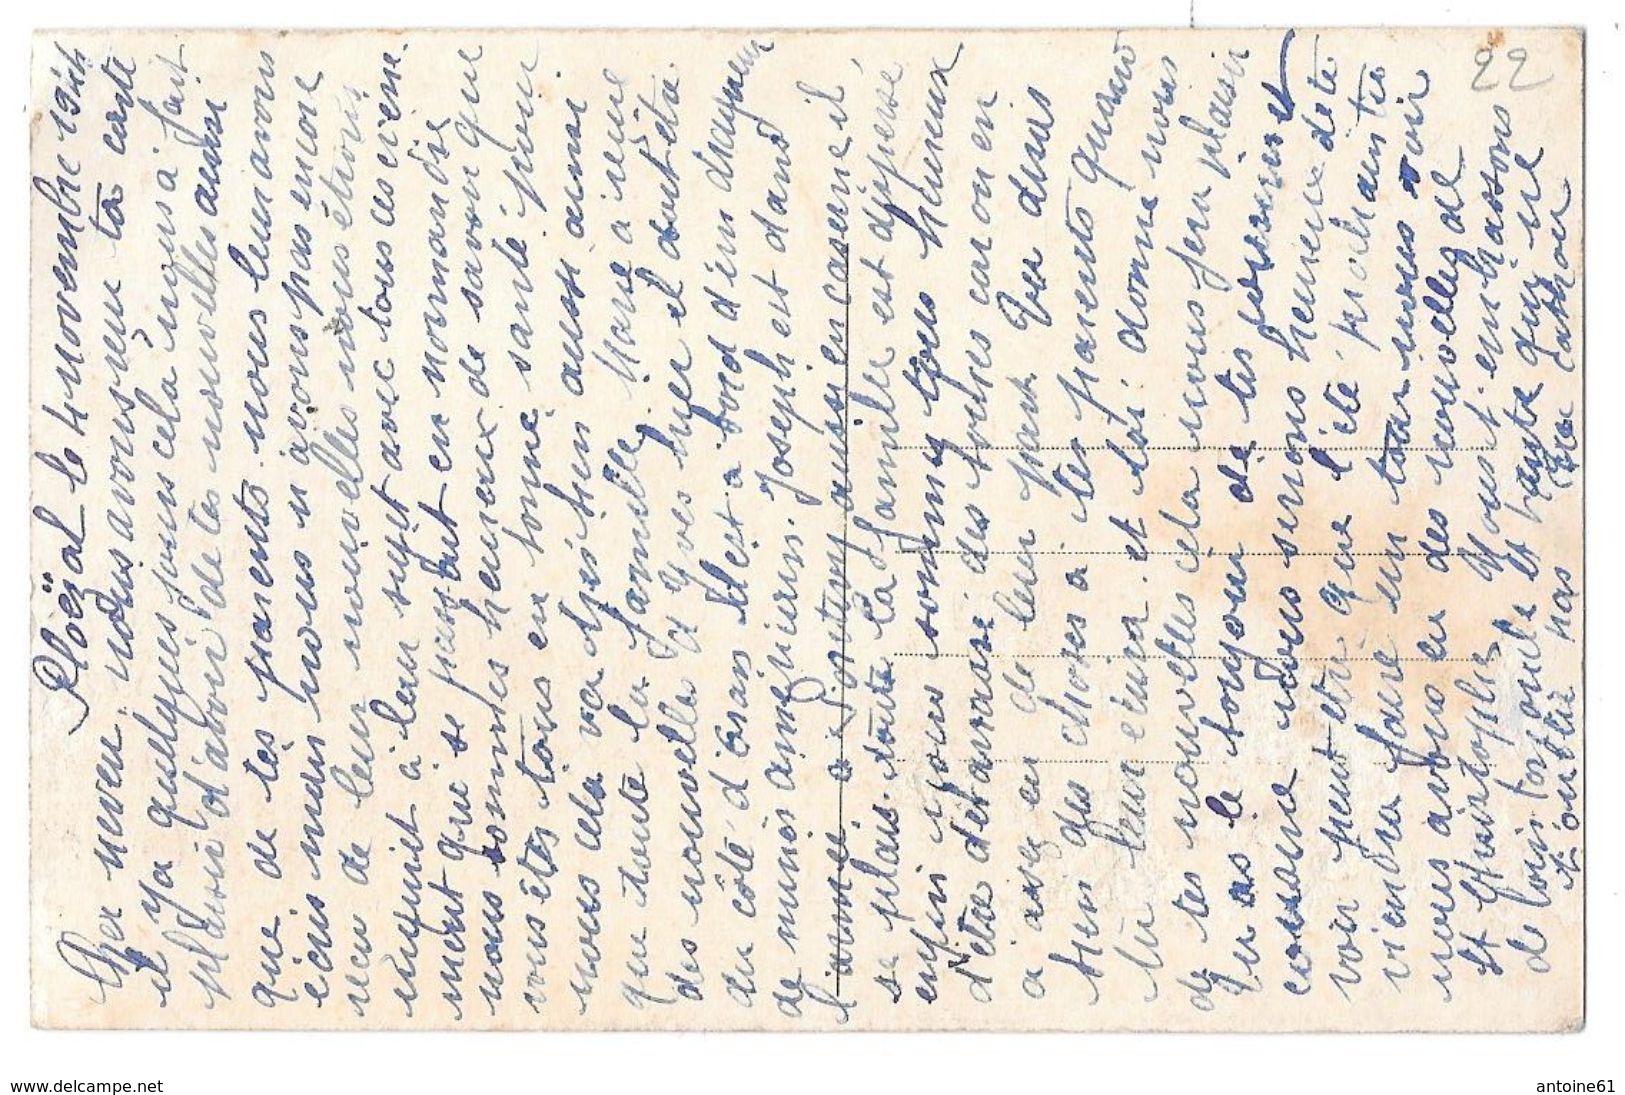 Ploëzal le 4 novembre 1944
Cher neveu nous avons reçu ta carte
il y a quelques jours cela nous a fait
plaisir d'avoir de tes nouvelles ainsi
que de tes parents nous leur avons
écris mais nous n'avons pas encore
recu de leur nouvelles nous étions
inquiet à leur sujet avec tous ces evene
ment qui se passait en normandie
nous sommes heureux de savoir que
vous êtes tous en bonne santé pour
nous cela va très bien aussi ainsi
que toute la famille Marie a reçue
des nouvelles d'Yves hier il doit être
du côté d'oran il est à bord d'un dragueur
de mines américains. Joseph est dans
l'armée à aussi en caserne il
se plais. toute la famille est dispersé
enfin nous somme tous heureux
d'être débarrassé des boches car on en
a assez eu de leur part. Tu diras
bien des choses à tes parents quand
tu leur ecrira. et toi donne nous
de tes nouvelles cela nous fera plaisir
tu as le toujour de tes
comme nous serions heureux de te
voir peut etre que l'été prochain tu
viendra faire un tour nous voir
nous avons eu des nouvelles de
St Christophe Yous t'embrassons
de loin ton oncle et tante qui ne
t'oublie pas
22
www.delcampe.net
antoine61